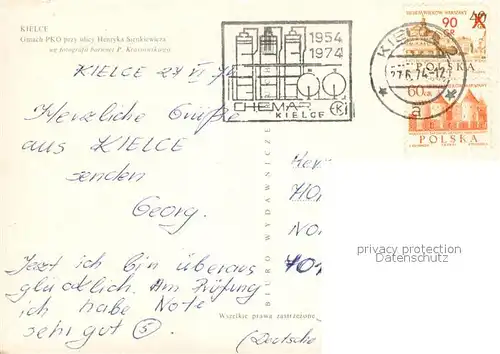 KIELCE
Gmach PKO przy ulicy Henryka Sienkiewicza
wg fotografii barwnej P. Krassowskiego
KIELCE 27 VI 74
Herzliche Grüße
aus KIELCE
senden
Georg.
Jetzt ich bin überaus
glücklich. Am Prüfung
ich habe Note
sehr gut (5)
1954
1974
CHEMAR
KIELCE
KIELCE 2
27.6.74-12
a
90
40
POLSKA
60
POLSKA
BIURO WYDAWNICZE RUCH
Wszelkie prawa zastrzeżone
privacy protection
Datenschutz
(Deutsche